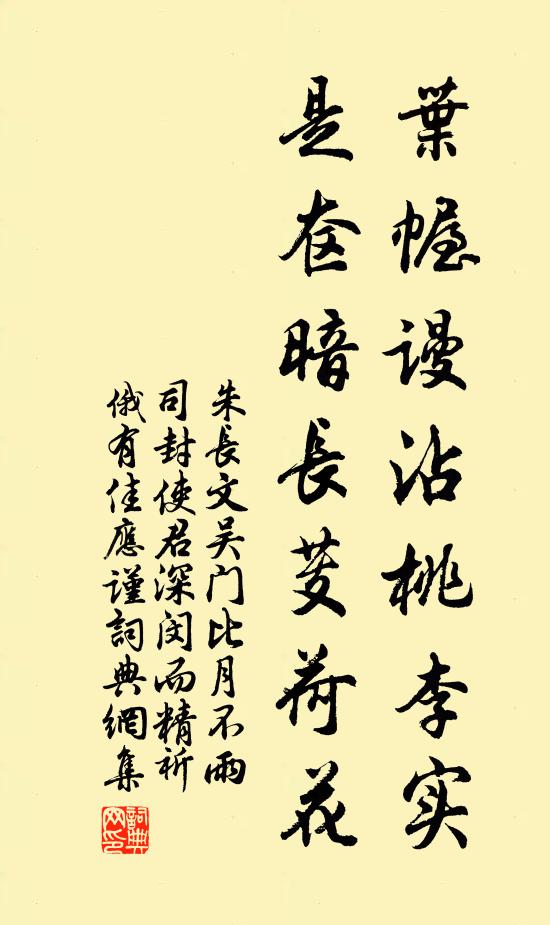 葉幄謾沾桃李实
是奁暗長芰荷花
朱長文吴门比月不雨
司封使君深闵而精祈
俄有佳應谨詞典網集
詞典网印